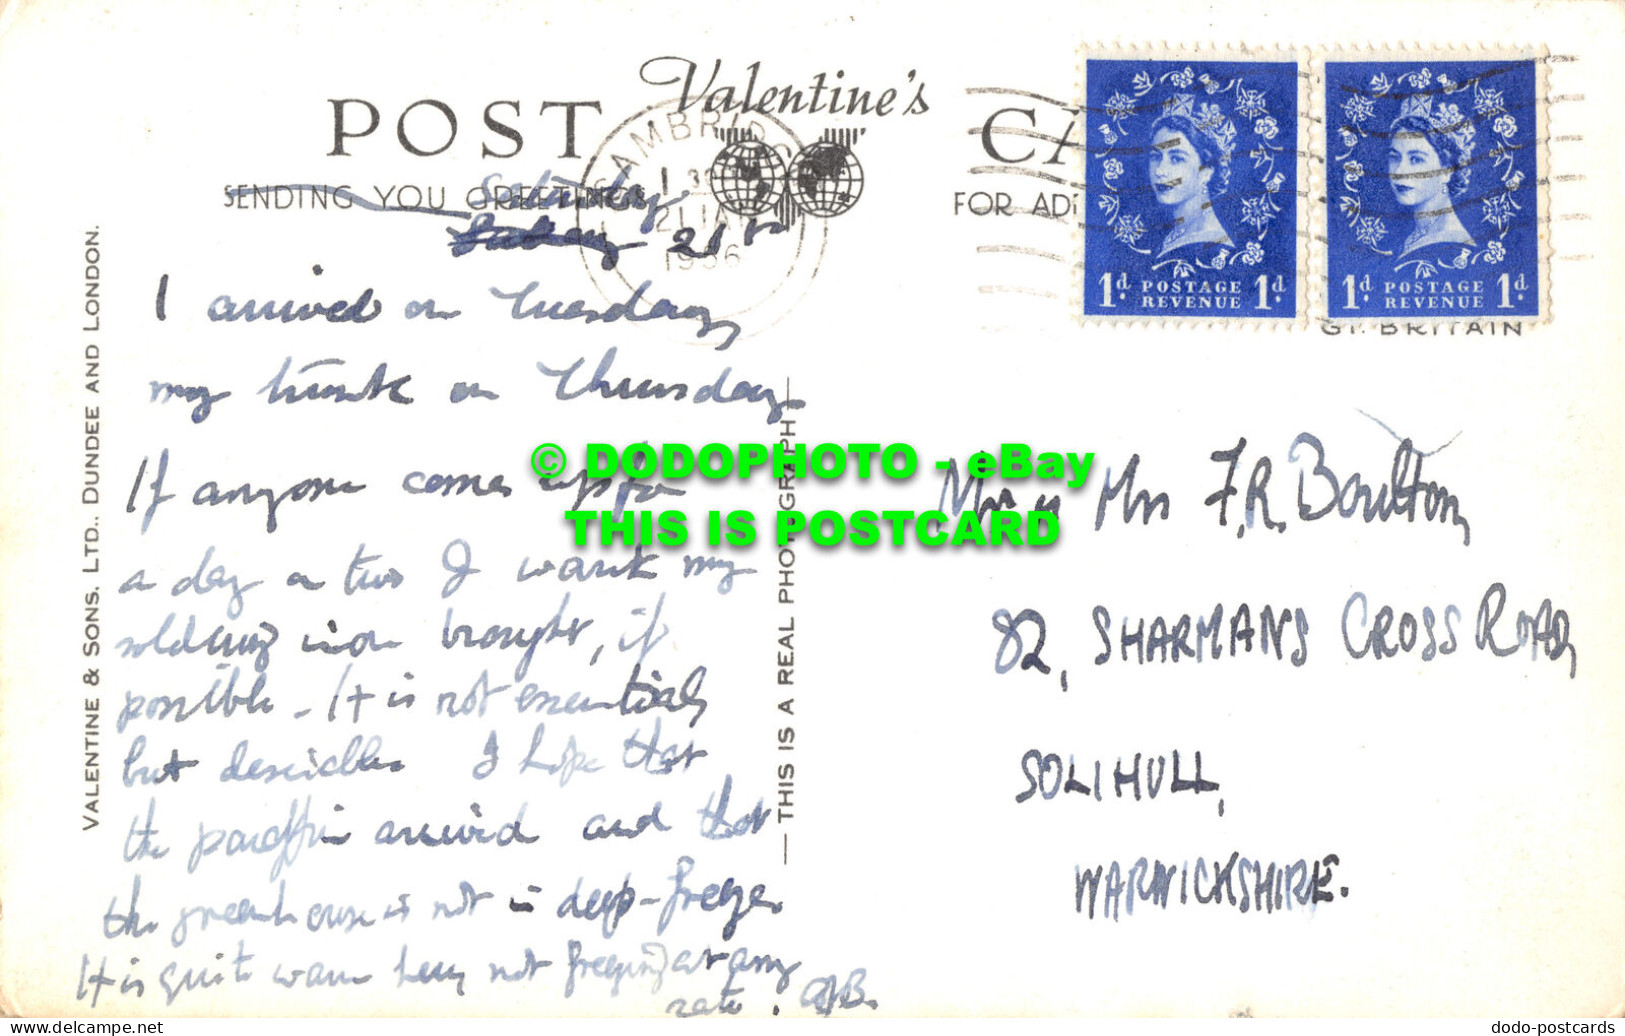 Valentine's
POST CA
SENDING YOU GREETINGS
FOR AD
CAMBRIDGE
1 30
21 JA
1956
1d. POSTAGE REVENUE 1d.
1d. POSTAGE REVENUE 1d.
GT. BRITAIN
VALENTINE & SONS, LTD., DUNDEE AND LONDON.
THIS IS A REAL PHOTOGRAPH
Saturday
21st
I arrived on Tuesday,
my trunk on Thursday.
If anyone comes up for
a day or two I want my
soldering iron brought, if
possible. It is not essential
but desirable. I hope that
the paraffin arrived and that
the greenhouse is not in deep-freeze.
It is quite warm here, not freezing at any
rate. AJB.
Mr & Mrs F.R. Boulton,
82, SHARMANS CROSS ROAD,
SOLIHULL,
WARWICKSHIRE.
© DODOPHOTO - eBay
THIS IS POSTCARD
dodo-postcards